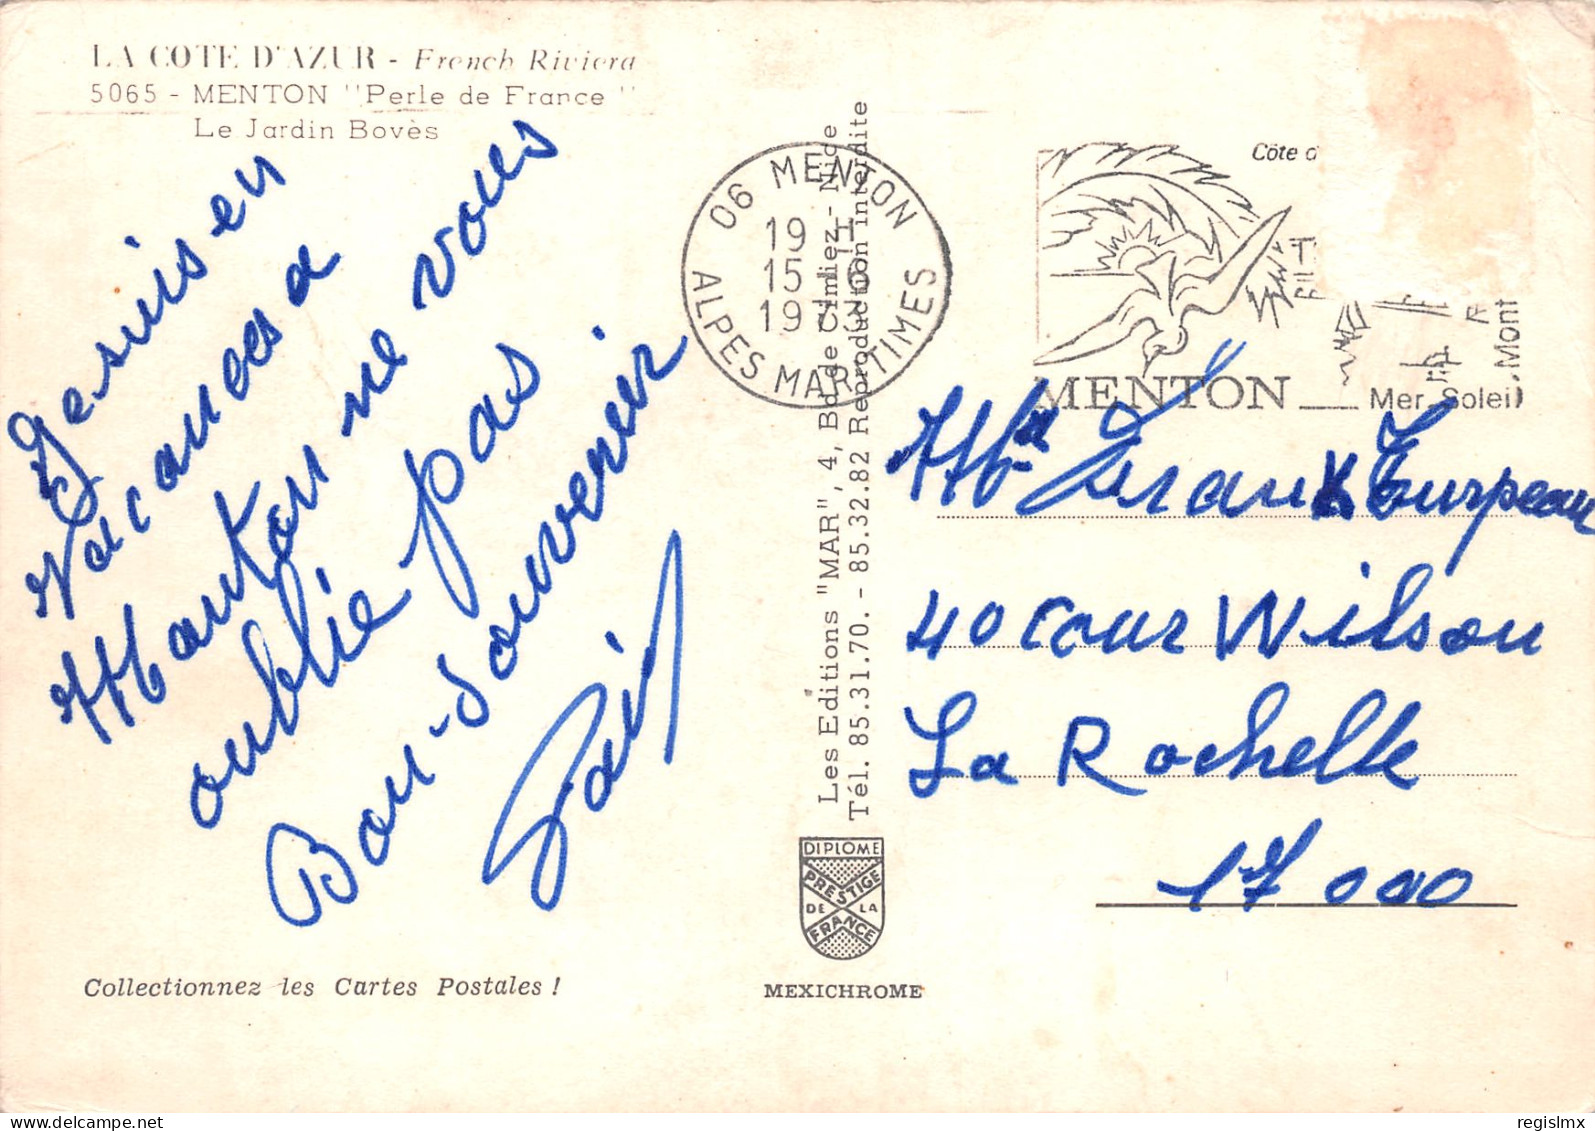 LA COTE D'AZUR - French Riviera
5065 - MENTON "Perle de France"
Le Jardin Bovès
Je suis en
Vacances a
Manton ne vous
oublie pas
Bon-Souvenir
06 MENTON
19 H
15 - 6
1973
ALPES MARITIMES
Côte d
MENTON
Mer Soleil
Mont
Les Editions "MAR", 4, Bd de Cimiez - Nice
Tél. 85.31.70. - 85.32.82 Reproduction interdite
Turpeau
40 Cour Wilson
La Rochelle
17000
DIPLOME
PRESTIGE
DE LA
FRANCE
MEXICHROME
Collectionnez les Cartes Postales !
regislmx